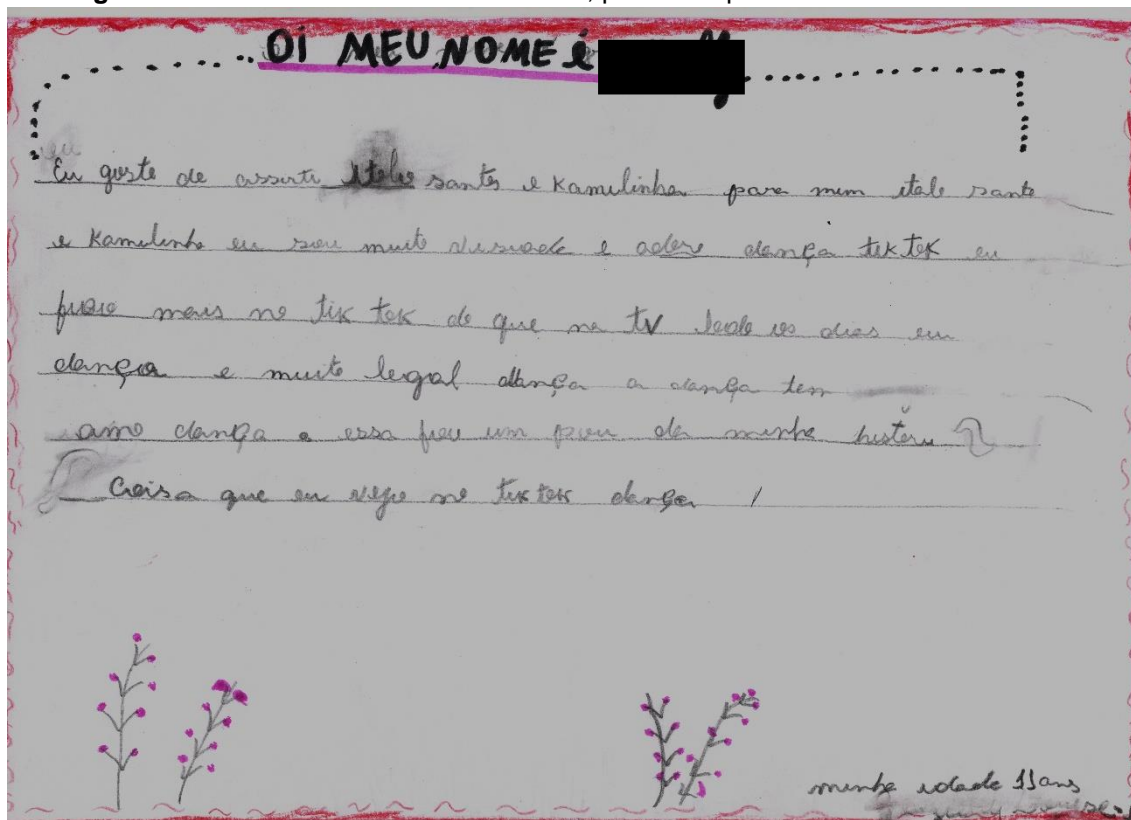 OI MEU NOME é
eu
Eu goste de assisti Itale santos e Kamilinha para mim itale santo
e Kamilinha eu sou muito visiada e adoro dança tik tok eu
fico mais no tik tok do que na tv todo os dias eu
dança e muito legal dança a dança tem
amo dança e essa foi um pou da minha histori
Coisa que eu vejo no tik tok dança !
minha idade 11 ans